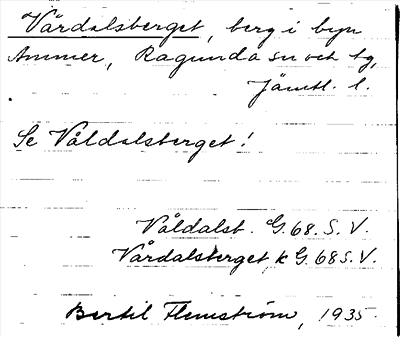 Vårdalsberget, berg i byn
Ammer, Ragunda sn och tg,
Jämtl. l.
Se Våldalsberget!
Våldalsb. G. 68. S. V.
Vårdalsberget k G. 68 S. V.
Bertil Flemström, 1935